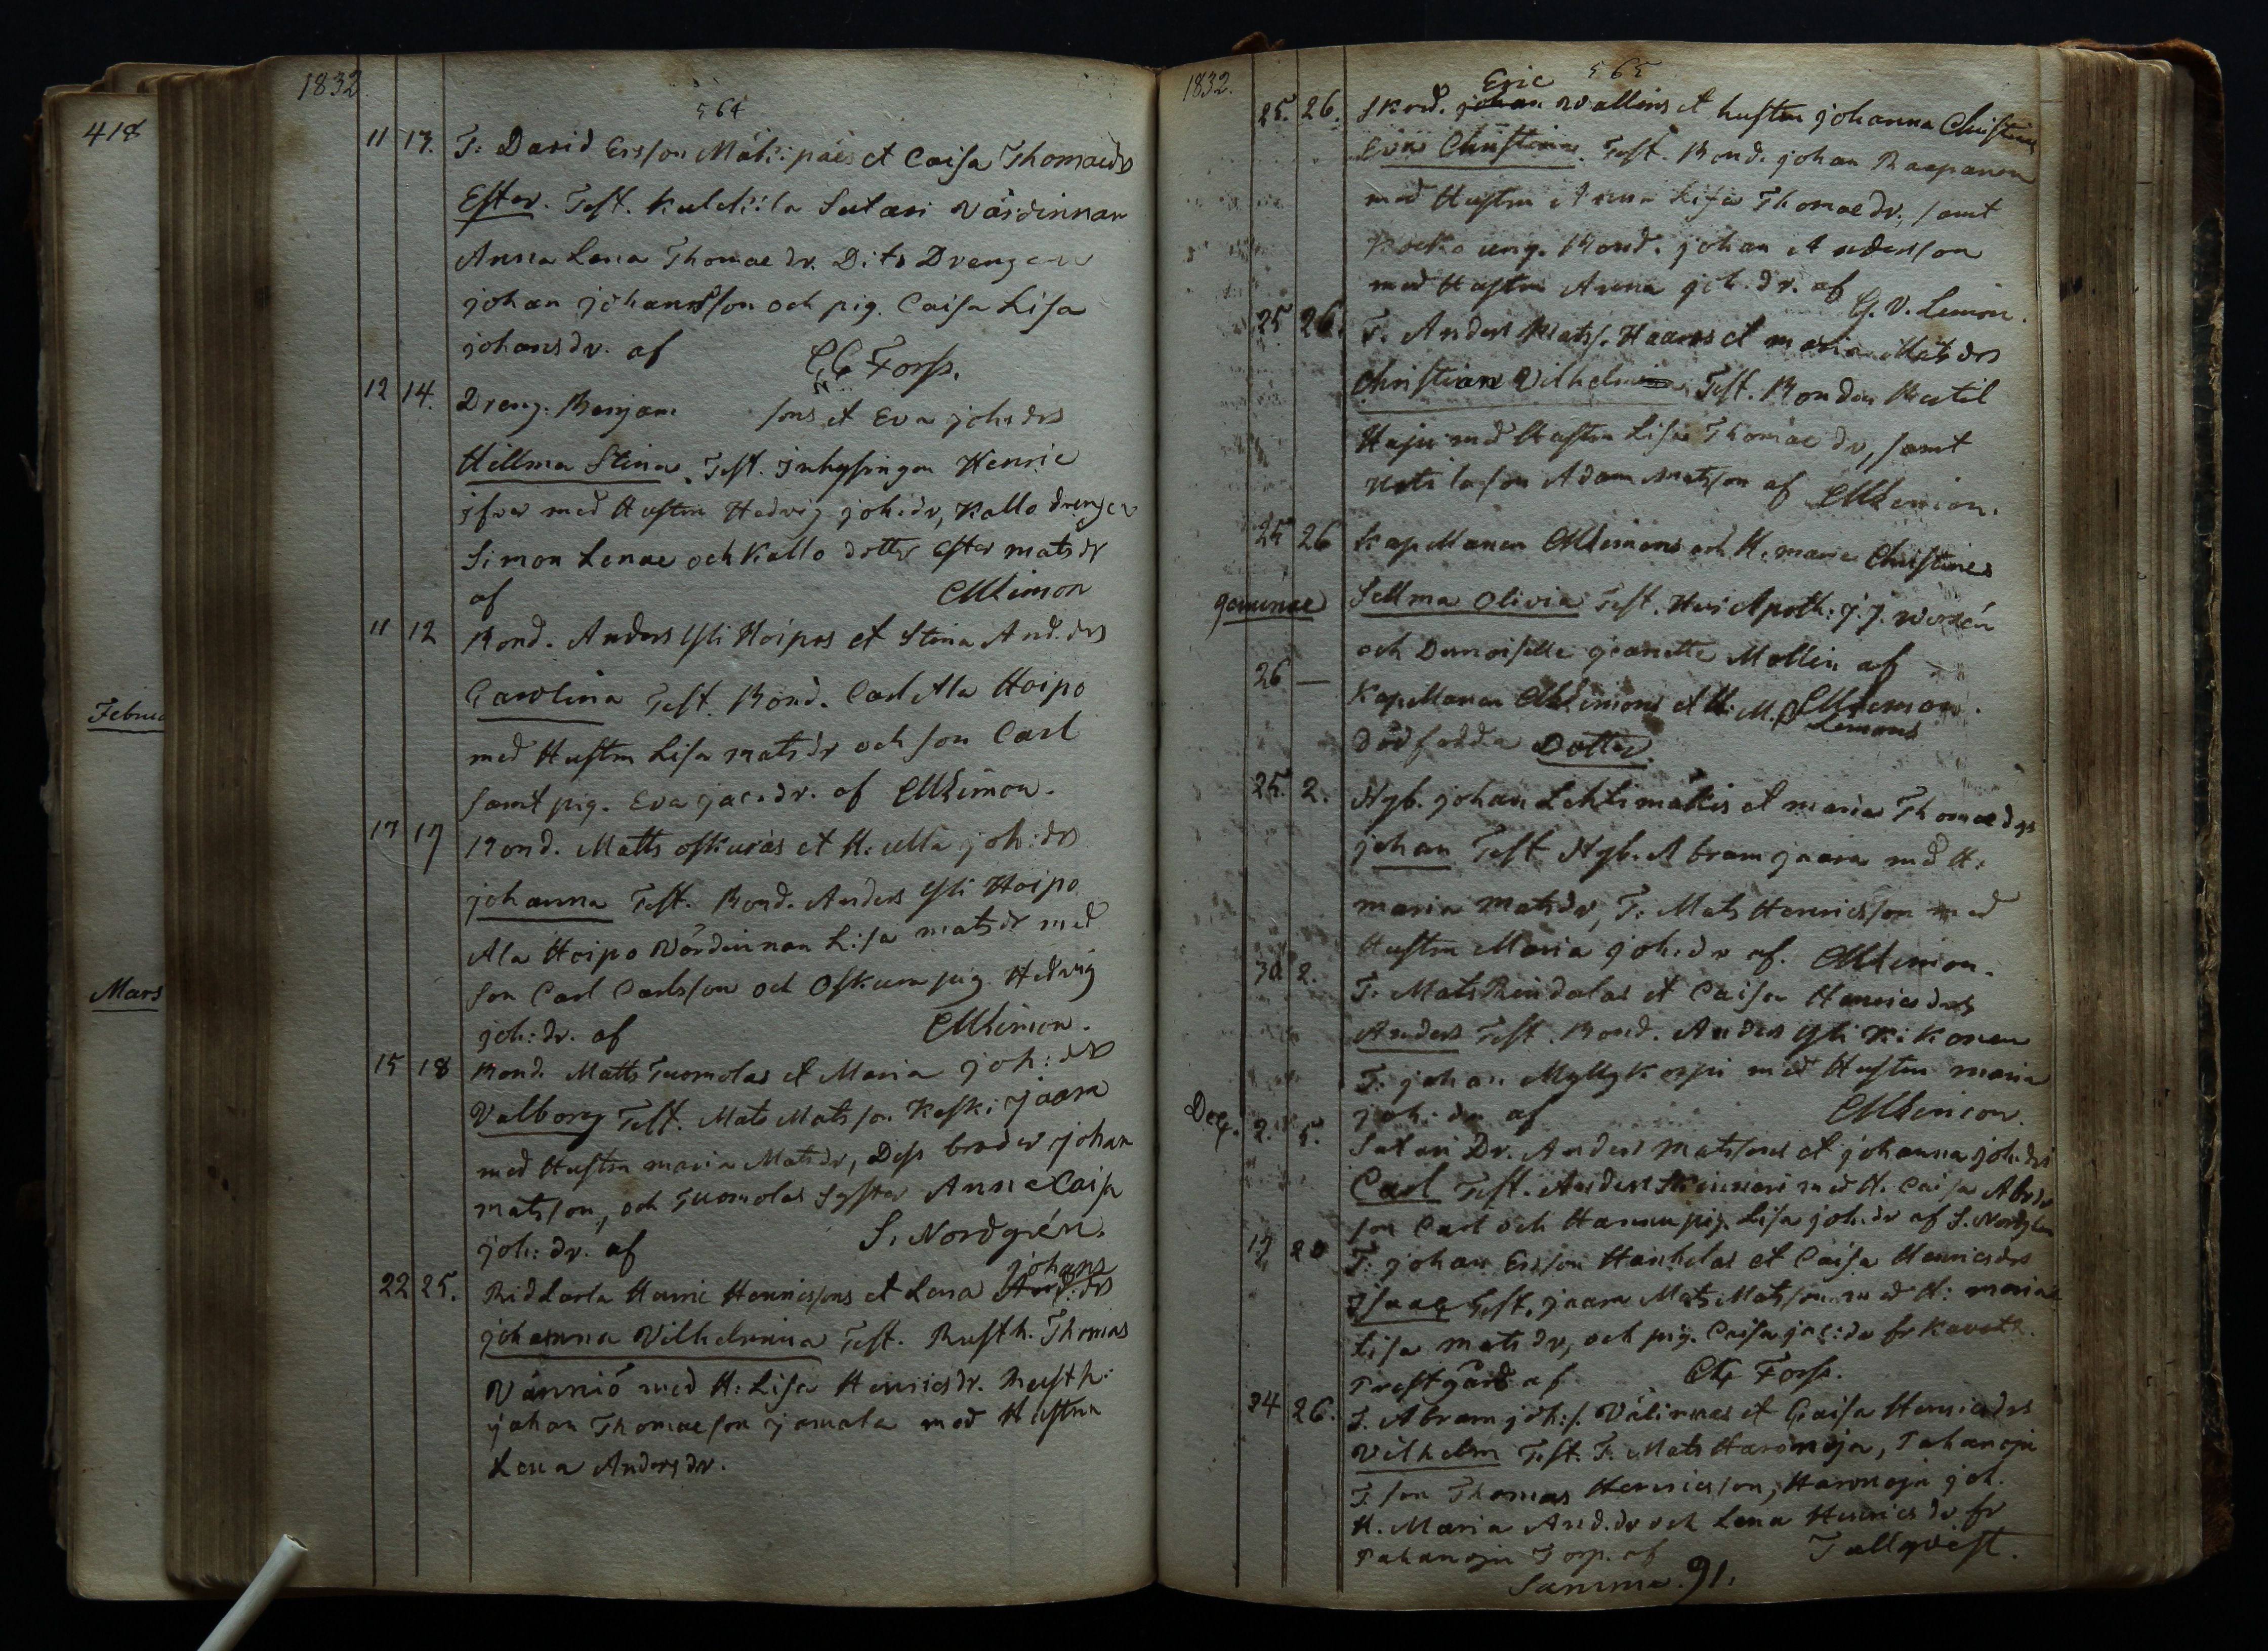 418
Februa
Mars
1832.
564
11 13. T: David Ersson Mäkipäes et Caisa Thomaedr
Ester. Test. Kulckila Sutari Värdinnan
Anna Lena Thomaedr. Dito Drengen
johan johansson och pig. Caisa Lisa
johansdr. af CG Forss.
12 14. Dreng. Benjam sons et Eva johsdrs
Hillma Stina. Test. Inhysingen Henric
ifver med Hustru Hedvig joh:dr, Kallo drengen
Simon Lenae och Kallo dotter Ester matsdr
af CMLimon
11 12 Bond. Anders Yli Hoipos et Stina And.drs
Carolina Test. Bond. Carl Ala Hoipo
med Hustru Lisa matsdr och son Carl
samt pig. Eva jac.dr. af CMLimon.
17 17 Bond. Matts oskuras et H: ulla joh:drs
johanna Test. Bond. Anders Yli Hoipo
Ala Hoipo Värdinnan Lisa matsdr med
son Carl Carlsson och Oskura pig. Hedvig
joh:dr. af CMLimon.
15 18 Bond. Matts Tuomolas et Maria joh:drs
Valborg Test. Mats Matsson Keski jaara
med Hustru maria Matsdr, Dess broder johan
matsson, och Tuomolas Syster Anna Caisa
joh:dr. af S. Nordgrén.
johans
22 25. Rid Larla Henric Henricssons et Lena And:drs
johanna Vilhelmina Test. Rusth. Thomas
Vännió med H: Lisa Henricsdr. Rusth:
johan Thomaeson jamala med Hustru
Lena Andersdr.
1832.
565
Eric
25. 26. Skrd. johan Wallins et hustru johanna Christines
Eva Christina. Test. Bond. johan Raapanen
med Hustru Anna Lisa Thomaedr, samt
ung. Bond. johan Andersson
med Hustru Anna joh.dr. af G. V. Lemon.
25 26. T. Anders Matss. Haaras et maria Mats drs
Christian Vilhelm Test. Bonden Kertil
Haju med Hustru Lisa Thomaedr, samt
son Adam Matsson af CMLemion.
25 26 Kapellanen CMLimons och H. maria Christines
geminae Sellma Olivia Test. Herr Apoth: J. J. Wexén
och Demoiselle jeanette Mollin af
CMLemon.
26 — Kapellanen CMLimons et H: M. C Lemons
Dödfödda Dotter.
25. 2. Nyb. johan Lehtimäkis et maria Thomaedrs
johan Test Nyb. Abram jaara med H.
maria matsdr, T. Mats Henricsson med
Hustru Maria joh:dr af. CMLemon.
30. 2. T. Mats Rindalas et Caisa Henricsdrs
Anders Test. Bond. Anders Yli Kikonen
T. johan Myllykorpi med Hustru maria
joh:dr af CMLemon.
Dec. 2. 5. Sutari Dr. Anders Matssons et johanna joh:drs
Carl Test. Anders Skinnari med H. Caisa Abrdr
son Carl och Hannu pig. Lisa joh.dr af S. Nordgrén
17 20 T. johan Ersson Hanhelas et Caisa Henricsdrs
Isaac Test. jaara Mats Matsson med H: maria
Lisa matsdr, och pig. Caisa jac:dr fr Kavath.
Prestgård af CG Forss.
24 26. T. Abram joh:s. Välimaas et Caisa Henricsdrs
Vilhelm Test. T. Mats Haromoja, Pahaoja
T. son Thomas Henricsson, Haromoja joh.
H. Maria And.dr och Lena Henricsdr fr
Pahanoja Torp. af Tallqvist.
Summa. 91.